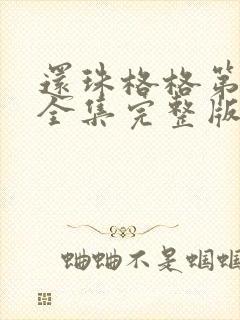 還珠格格第
全集完整版
蛐蛐不是蝈蝈